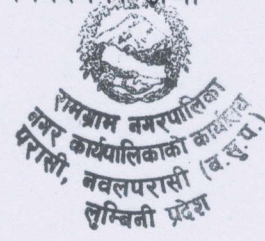 रामग्राम नगरपालिका
नगर कार्यपालिकाको कार्यालय
परासी, नवलपरासी (ब.सु.प.)
लुम्बिनी प्रदेश